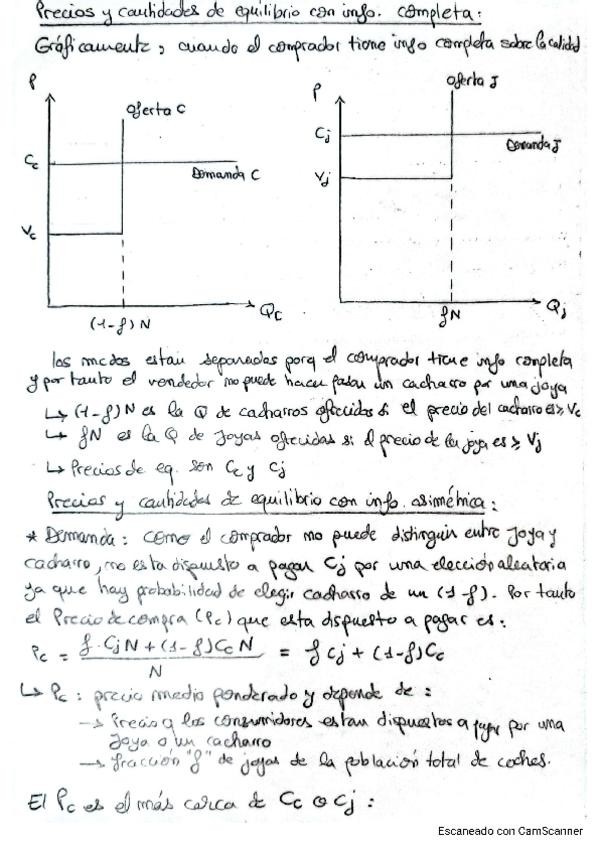 Precios y cantidades de equilibrio con info. completa:
Gráficamente, cuando el comprador tiene info completa sobre la calidad
P
Oferta C
Cc
Demanda C
Vc
Qc
(1-f)N
P
Oferta J
Cj
Demanda J
Vj
Qj
fN
los mcdos estan separados porq el comprador tiene info completa
y por tanto el vendedor no puede hacer pasar un cacharro por una joya
↳ (1-f)N es la Q de cacharros ofrecidos si el precio del cacharro es ≥ Vc
↳ fN es la Q de joyas ofrecidas si el precio de la joya es ≥ Vj
↳ Precios de eq. son Cc y Cj
Precios y cantidades de equilibrio con info. asimétrica:
* Demanda: como el comprador no puede distinguir entre joya y
cacharro, no esta dispuesto a pagar Cj por una elección aleatoria
ya que hay probabilidad de elegir cacharro de un (1-f). Por tanto
el Precio de compra (Pc) que esta dispuesto a pagar es:
Pc = f·CjN + (1-f)CcN / N = fCj + (1-f)Cc
↳ Pc: precio medio ponderado y depende de:
→ Precio q los consumidores estan dispuestos a pagar por una
joya o un cacharro
→ fracción "f" de joyas de la población total de coches.
El Pc es el más cerca de Cc o Cj:
Escaneado con CamScanner